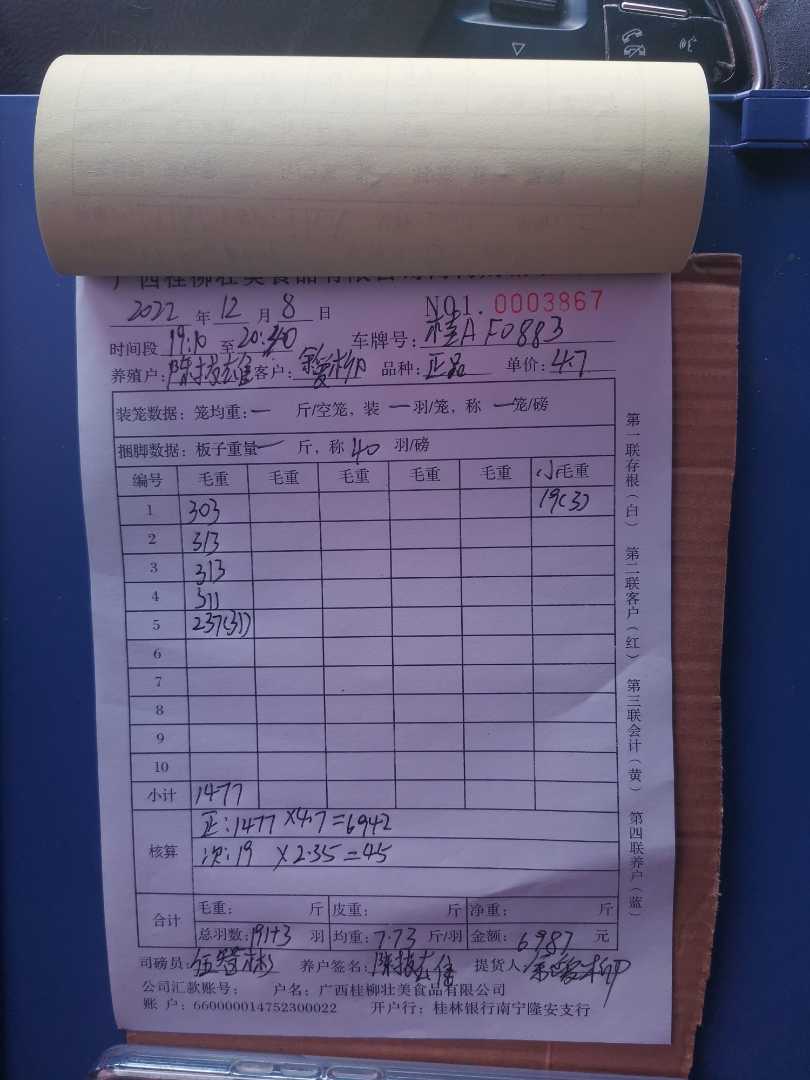 2022年12月8日 NO1. 0003867
时间段19:10至20:30 车牌号:桂AF0883
养殖户: 客户: 品种:正品 单价:4.7
装笼数据:笼均重:一 斤/空笼,装 一羽/笼,称 一笼/磅
捆脚数据:板子重量一 斤,称40 羽/磅
编号 毛重 毛重 毛重 毛重 毛重 小毛重
1 303 19(3)
2 313
3 313
4 311
5 237(31)
6
7
8
9
10
小计 1477
核算 正:1477×4.7=6942
次:19 ×2.35=45
合计 毛重: 斤 皮重: 斤 净重: 斤
总羽数:191+3 羽 均重:7.73 斤/羽 金额:6987 元
司磅员: 养户签名: 提货人:
公司汇款账号: 户名:广西桂柳壮美食品有限公司
账户:660000014752300022 开户行:桂林银行南宁隆安支行
第一联存根(白) 第二联客户(红) 第三联会计(黄) 第四联养户(蓝)